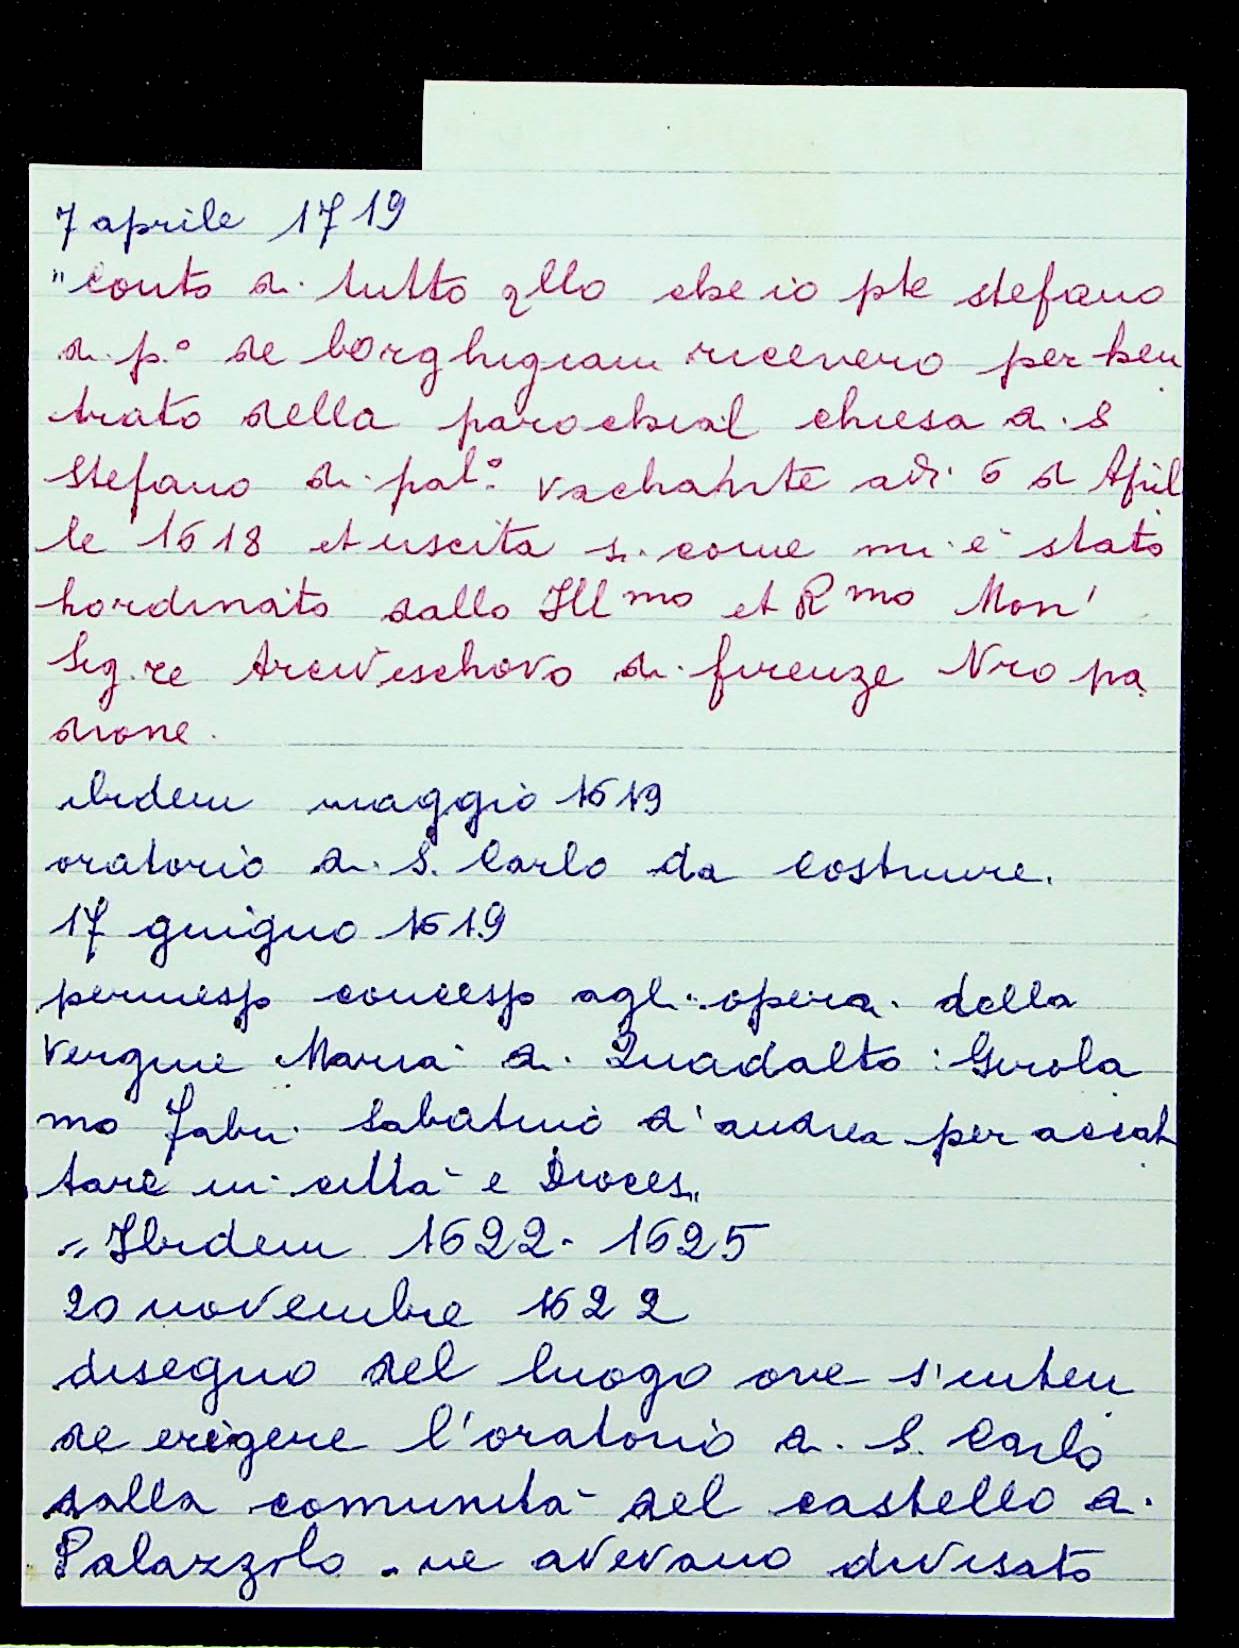 7 aprile 1719
"Conto di tutto qllo che io pte stefano
di p.° de borghigiani riceverò per ben
trato della parochial chiesa di S
Stefano di pal.° vachahnte adi 6 d April
le 1618 et uscita si come mi è stato
hordinato dallo Ill mo et R mo Mon'
Sig.re Arciveschovo di firenze Nro pa
drone.
ibidem maggio 1619
oratorio di S. Carlo da costruire.
17 giugno 1619
permesso concesso agli operai della
Vergine Maria di Quadalto: Girola
mo Fabri Sabatino d'andrea per accat
tare in città e Dioces"
"Ibidem 1622-1625
20 novembre 1622
disegno del luogo ove s'inten
de erigere l'oratorio di S. Carlo
dalla comunità del castello di
Palazzolo. ne avevano divisato